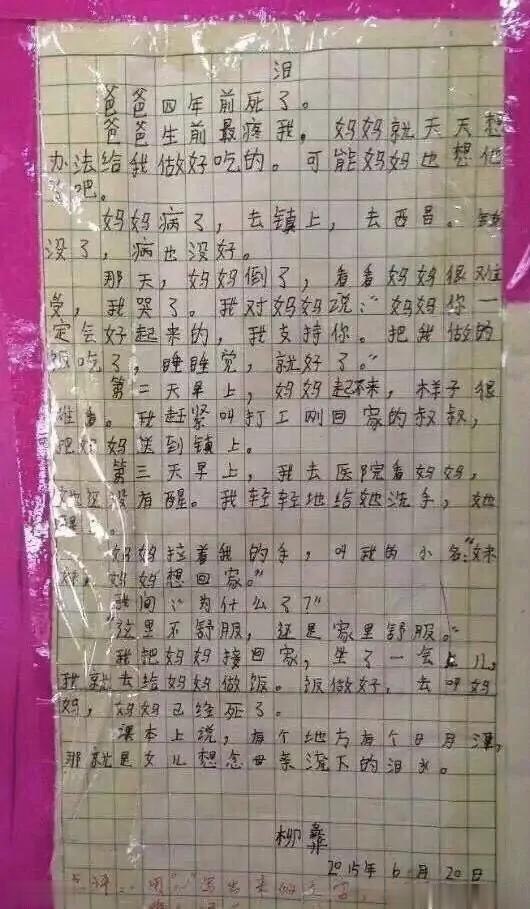 泪
爸爸四年前死了。
爸爸生前最疼我。妈妈就天天想
办法给我做好吃的。可能妈妈也想他
了吧。
妈妈病了，去镇上，去西昌。钱
没了，病也没好。
那天，妈妈倒了，看看妈妈很难
受，我哭了。我对妈妈说：“妈妈你一
定会好起来的，我支持你。把我做的
饭吃了，睡睡觉，就好了。”
第二天早上，妈妈起不来，样子很
难看。我赶紧叫打工刚回家的叔叔，
把妈妈送到镇上。
第三天早上，我去医院看妈妈，
她还没有醒。我轻轻地给她洗手，她
醒
妈妈拉着我的手，叫我的小名：“妹
妹，妈妈想回家。”
我问：“为什么了？”
“这里不舒服，还是家里舒服。”
我把妈妈接回家，坐了一会儿，
我就去给妈妈做饭。饭做好，去叫妈
妈，妈妈已经死了。
课本上说，有个地方有个日月潭，
那就是女儿想念母亲流下的泪水。
柳彝
2015年6月20日
点评：用“ ”写出来的文字，